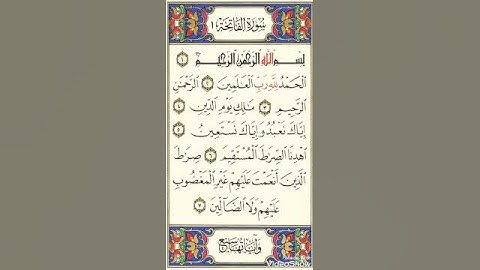 سُورَةُ الفَاتِحَةِ ١
بِسْمِ ٱللَّهِ ٱلرَّحْمَٰنِ ٱلرَّحِيمِ ١
ٱلْحَمْدُ لِلَّهِ رَبِّ ٱلْعَٰلَمِينَ ٢ ٱلرَّحْمَٰنِ
ٱلرَّحِيمِ ٣ مَٰلِكِ يَوْمِ ٱلدِّينِ ٤
إِيَّاكَ نَعْبُدُ وَإِيَّاكَ نَسْتَعِينُ ٥
ٱهْدِنَا ٱلصِّرَٰطَ ٱلْمُسْتَقِيمَ ٦ صِرَٰطَ
ٱلَّذِينَ أَنْعَمْتَ عَلَيْهِمْ غَيْرِ ٱلْمَغْضُوبِ
عَلَيْهِمْ وَلَا ٱلضَّآلِّينَ ٧
وَآيَاتُهَا سَبْعٌ
VideoShow